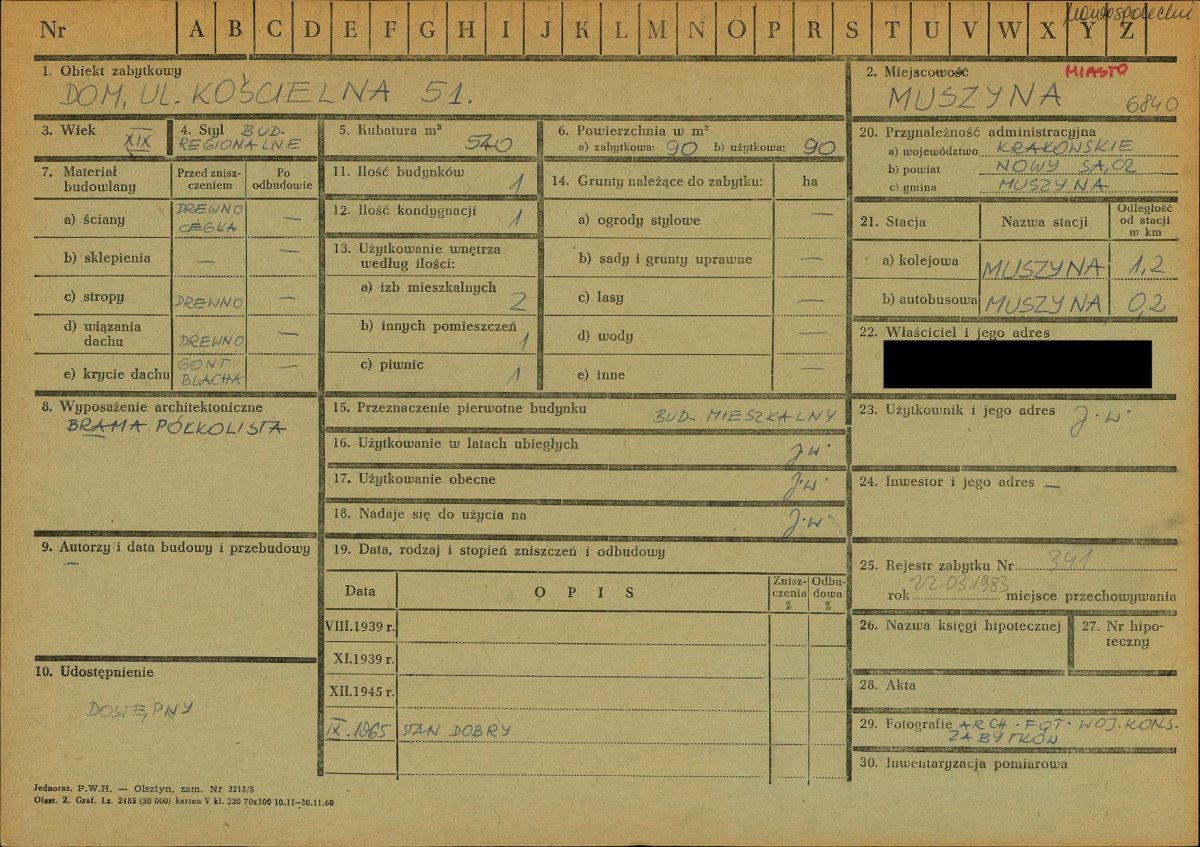 Nr A B C D E F G H I J K L M N O P R S T U V W X Y Z
1. Obiekt zabytkowy
DOM, UL. KOŚCIELNA 51.
2. Miejscowość MIASTO
MUSZYNA 6840
3. Wiek
XIX
4. Styl BUD-
REGIONALNE
5. Kubatura m³
540
6. Powierzchnia w m²
a) zabytkowa: 90 b) użytkowa: 90
7. Materiał budowlany
Przed zniszczeniem
Po odbudowie
a) ściany DREWNO CEGŁA —
b) sklepienia — —
c) stropy DREWNO —
d) wiązania dachu DREWNO —
e) krycie dachu GONT BLACHA —
8. Wyposażenie architektoniczne
BRAMA PÓŁKOLISTA
9. Autorzy i data budowy i przebudowy
—
10. Udostępnienie
DOSTĘPNY
11. Ilość budynków 1
12. Ilość kondygnacji 1
13. Użytkowanie wnętrza
według ilości:
a) izb mieszkalnych 2
b) innych pomieszczeń 1
c) piwnic 1
14. Grunty należące do zabytku: ha
a) ogrody stylowe —
b) sady i grunty uprawne —
c) lasy —
d) wody —
e) inne —
15. Przeznaczenie pierwotne budynku BUD- MIESZKALNY
16. Użytkowanie w latach ubiegłych J.w.
17. Użytkowanie obecne J.w.
18. Nadaje się do użycia na J.w.
19. Data, rodzaj i stopień zniszczeń i odbudowy
Data OPIS Zniszczenia % Odbudowa %
VIII.1939 r.
XI.1939 r.
XII.1945 r.
IX.1965 STAN DOBRY
20. Przynależność administracyjna
a) województwo KRAKOWSKIE
b) powiat NOWY SĄCZ
c) gmina MUSZYNA
21. Stacja Nazwa stacji Odległość od stacji w km
a) kolejowa MUSZYNA 1,2
b) autobusowa MUSZYNA 0,2
22. Właściciel i jego adres
23. Użytkownik i jego adres J.w.
24. Inwestor i jego adres —
25. Rejestr zabytku Nr 341
rok 22.03.1983 miejsce przechowywania
26. Nazwa księgi hipotecznej
27. Nr hipoteczny
28. Akta
29. Fotografie ARCH-FOT. WOJ. KONS.
ZABYTKÓW
30. Inwentaryzacja pomiarowa
Jednoraz. P.W.H. — Olsztyn, zam. Nr 3215/S
Olszt. Z. Graf. Lz. 2485 (30 000) karton V kl. 220 70x100 10.11—30.11.60